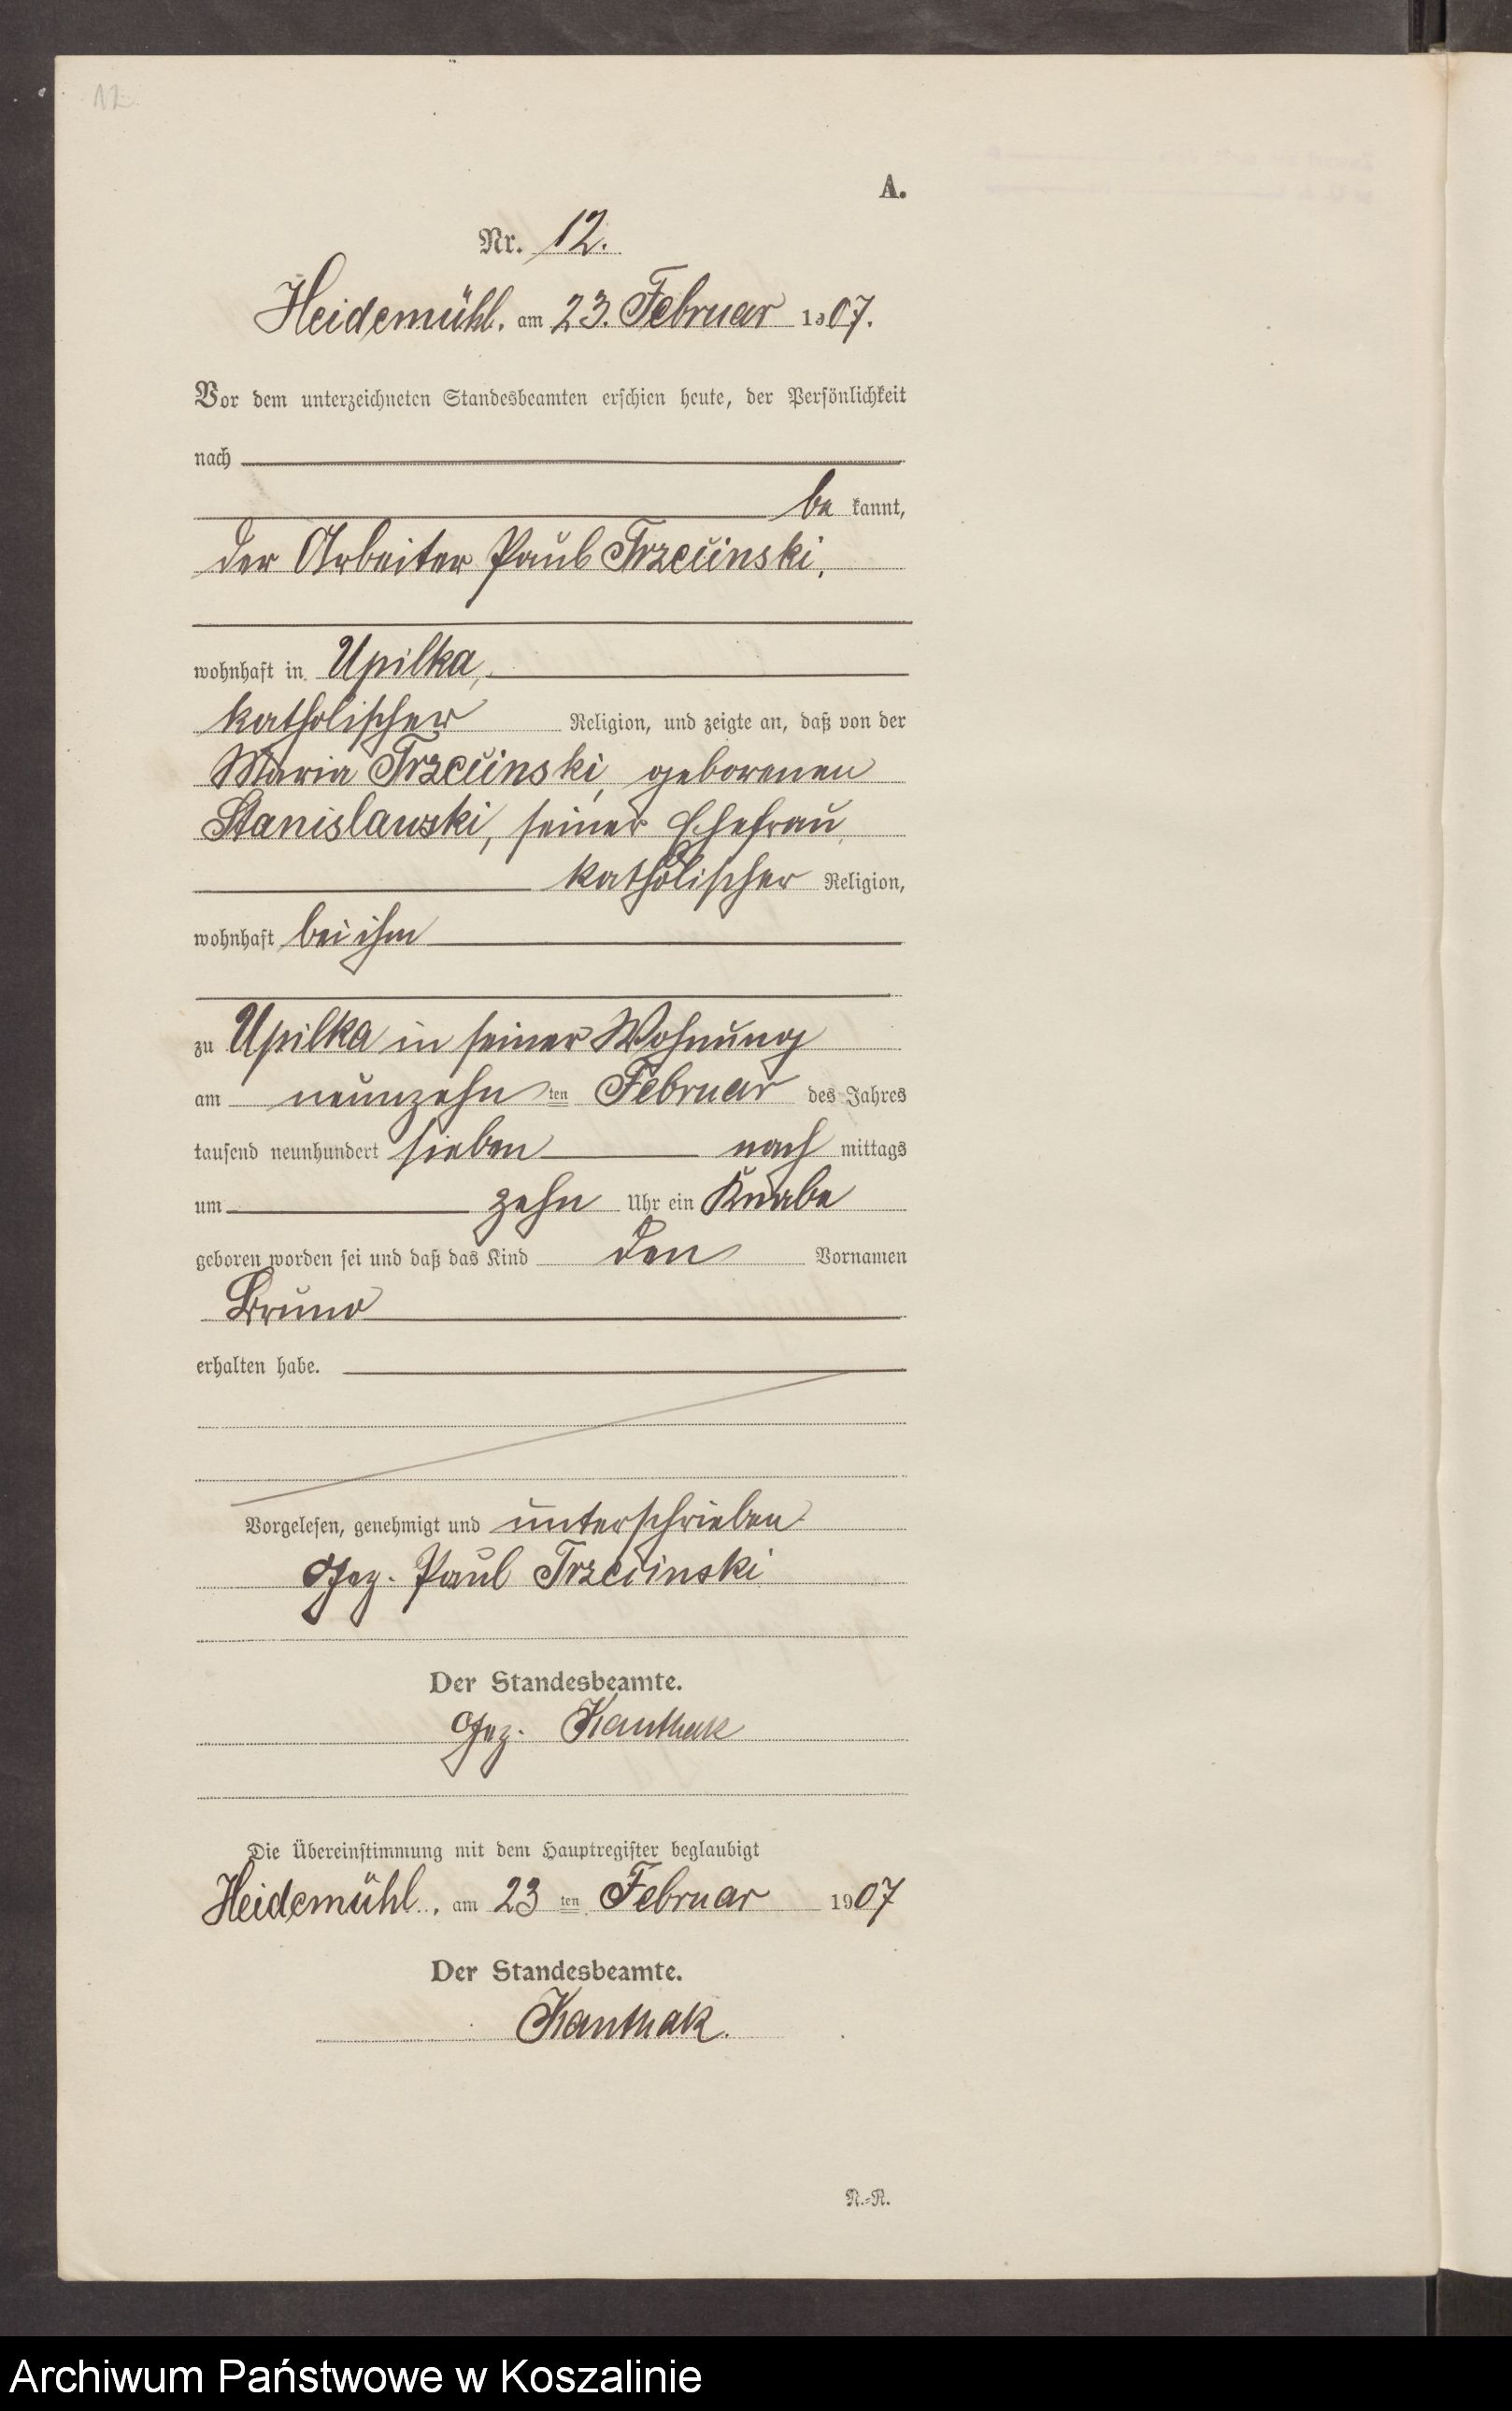 12.
A.
Nr. 12.
Heidemühl, am 23. Februar 1907.
Vor dem unterzeichneten Standesbeamten erschien heute, der Persönlichkeit
nach
be kannt,
der Arbeiter Paul Trzcinski,
wohnhaft in Upilka,
katholischer Religion, und zeigte an, daß von der
Maria Trzcinski, geborenen
Stanislawski, seiner Ehefrau,
katholischer Religion,
wohnhaft bei ihm
zu Upilka in seiner Wohnung
am neunzehn ten Februar des Jahres
tausend neunhundert sieben nach mittags
um zehn Uhr ein Knabe
geboren worden sei und daß das Kind den Vornamen
Bruno
erhalten habe.
Vorgelesen, genehmigt und unterschrieben
Gez. Paul Trzcinski
Der Standesbeamte.
Gez. Kanthak
Die Übereinstimmung mit dem Hauptregister beglaubigt
Heidemühl, am 23 ten Februar 1907
Der Standesbeamte.
Kanthak.
N.-R.
Archiwum Państwowe w Koszalinie